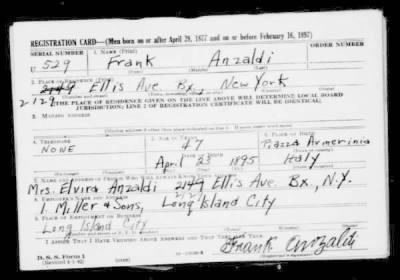 REGISTRATION CARD—(Men born on or after April 28, 1877 and on or before February 16, 1897)
SERIAL NUMBER 1. NAME (Print) ORDER NUMBER
U 529 Frank Anzaldi
(First) (Middle) (Last)
2. PLACE OF RESIDENCE (Print)
2149 Ellis Ave. Bx., New York
2129
[THE PLACE OF RESIDENCE GIVEN ON THE LINE ABOVE WILL DETERMINE LOCAL BOARD
JURISDICTION; LINE 2 OF REGISTRATION CERTIFICATE WILL BE IDENTICAL]
3. MAILING ADDRESS
4. TELEPHONE 5. AGE IN YEARS 6. PLACE OF BIRTH
NONE 47 Piazza Armerinia
April 23 1895 Italy
7. NAME AND ADDRESS OF PERSON WHO WILL ALWAYS KNOW YOUR ADDRESS
Mrs. Elvira Anzaldi 2149 Ellis Ave Bx., N.Y.
8. EMPLOYER'S NAME AND ADDRESS
I. Miller & Sons, Long Island City
9. PLACE OF EMPLOYMENT OR BUSINESS
Long Island City
I AFFIRM THAT I HAVE VERIFIED ABOVE ANSWERS AND THAT THEY ARE TRUE.
D. S. S. Form 1
(Revised 4-1-42)
Frank